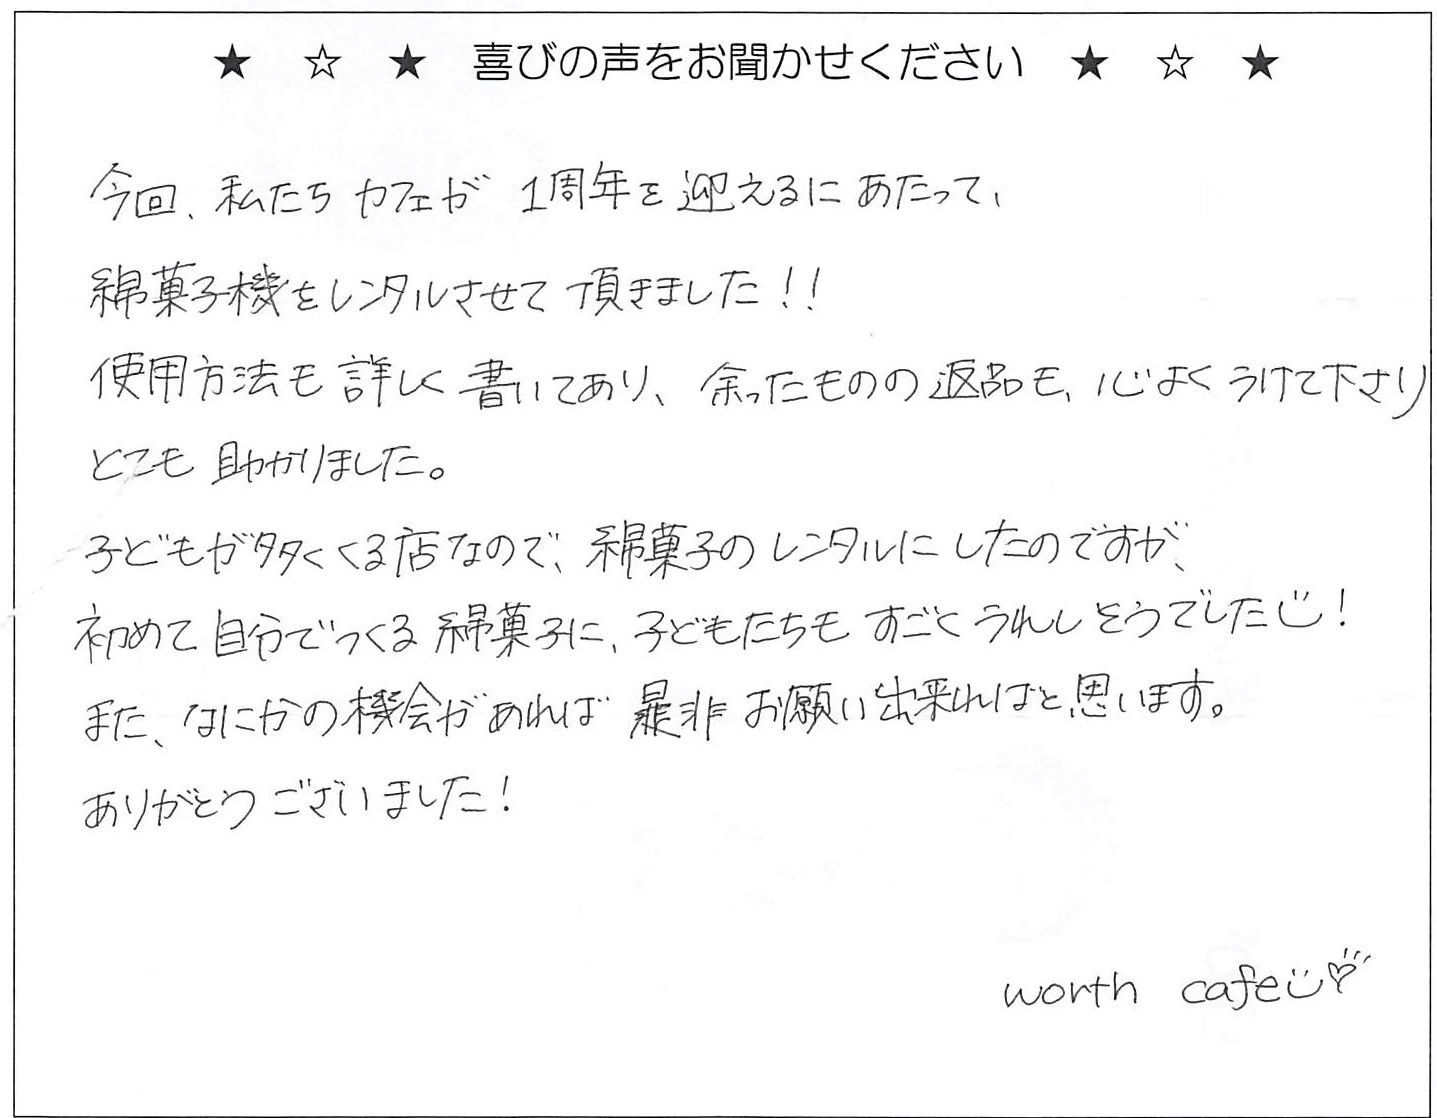 ★ ☆ ★ 喜びの声をお聞かせください ★ ☆ ★
今回、私たちカフェが 1周年を迎えるにあたって、
綿菓子機をレンタルさせて頂きました!!
使用方法も詳しく書いてあり、余ったものの返品も、心よくうけて下さり
とても助かりました。
子どもが多くくる店なので、綿菓子のレンタルにしたのですが、
初めて自分でつくる綿菓子に、子どもたちもすごくうれしそうでした!
また、なにかの機会があれば是非お願い出来ればと思います。
ありがとうございました!
worth cafe